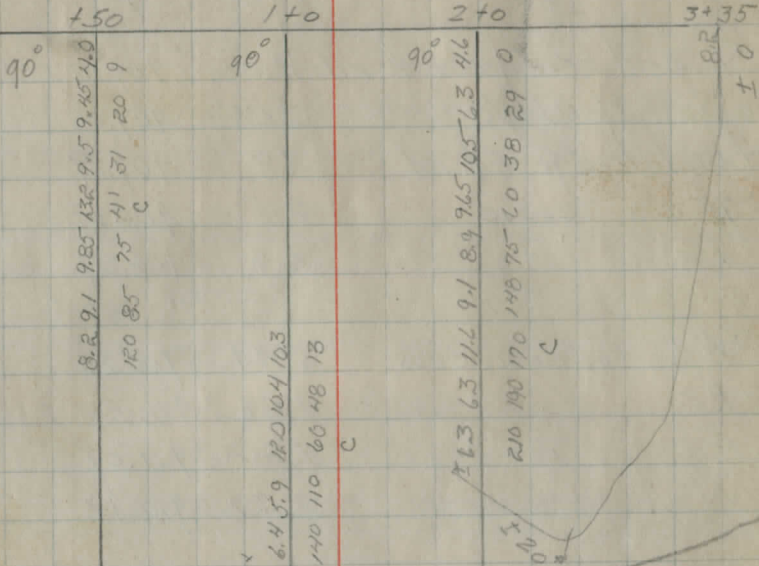 +50 1+0 2+0 3+35
90° 90° 90°
8.2 9.1 9.85 13.2 9.5 9.45 4.0
120 85 75 41 31 20 9
C
6.4 5.9 12.0 10.4 10.3
140 110 60 48 13
C
6.3 6.3 11.6 9.1 8.9 9.65 10.5 6.3 4.6
210 190 170 148 75 60 38 29 0
C
8.2
± 0